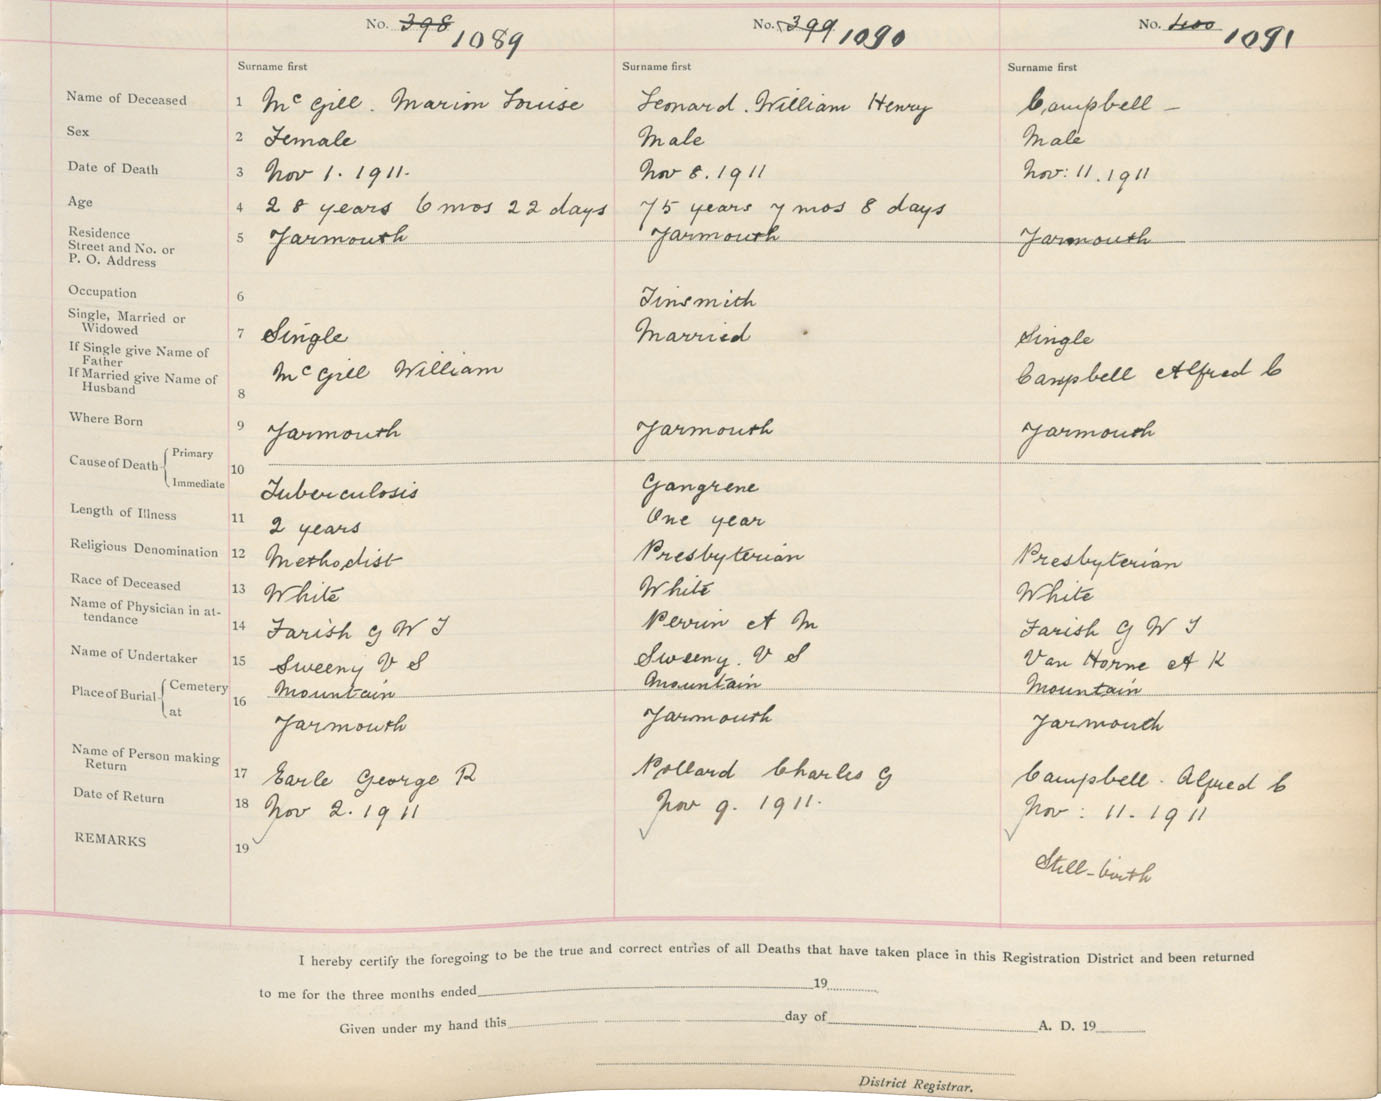 No. 398 1089 No. 399 1090 No. 400 1091
Surname first Surname first Surname first
Name of Deceased 1 McGill. Marion Louise Leonard. William Henry Campbell —
Sex 2 Female Male Male
Date of Death 3 Nov 1. 1911. Nov 8. 1911 Nov: 11. 1911
Age 4 28 years 6 mos 22 days 75 years 7 mos 8 days
Residence
Street and No. or
P. O. Address 5 Yarmouth Yarmouth Yarmouth
Occupation 6 Tinsmith
Single, Married or
Widowed 7 Single Married Single
If Single give Name of
Father
If Married give Name of
Husband 8 McGill William Campbell Alfred C
Where Born 9 Yarmouth Yarmouth Yarmouth
Cause of Death Primary
Immediate 10 Tuberculosis Gangrene
Length of Illness 11 2 years One year
Religious Denomination 12 Methodist Presbyterian Presbyterian
Race of Deceased 13 White White White
Name of Physician in at-
tendance 14 Farish G W T Perrin A M Farish G W T
Name of Undertaker 15 Sweeny V S Sweeny. V S Van Horne A K
Place of Burial Cemetery 16 Mountain Mountain Mountain
at Yarmouth Yarmouth Yarmouth
Name of Person making
Return 17 Earle George R Pollard Charles G Campbell. Alfred C
Date of Return 18 Nov 2. 1911 Nov 9. 1911. Nov: 11. 1911
REMARKS 19 Still-birth
I hereby certify the foregoing to be the true and correct entries of all Deaths that have taken place in this Registration District and been returned
to me for the three months ended 19
Given under my hand this day of A. D. 19
District Registrar.